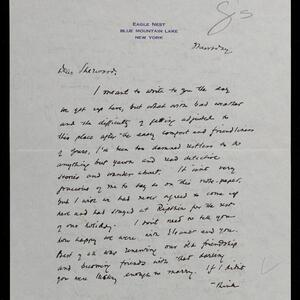 EAGLE NEST
BLUE MOUNTAIN LAKE
NEW YORK
Thursday
Dear Sherwood,
I meant to write you the day
we got up here, but what with bad weather
and the difficulty of getting adjusted to
this place after the easy comfort and friendliness
of yours, I've been too damned restless to do
anything but yawn and read detective
stories and wander about. It isn't very
gracious of me to say so on this note-paper,
but I wish we had never agreed to come up
here and had stayed at Ripshin for the rest
of our holiday. I don't need to tell you
how happy we were with Eleanor and you.
Best of all was renewing our old friendship
and becoming friends with that
you were lucky enough to marry. If I didn't
think